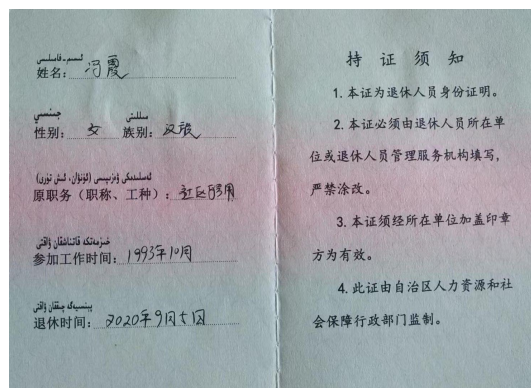 ئىسىم-فامىلىسى
姓名：冯霞
جىنسىي مىللىتى
性别：女 族别：汉族
ئەسلىدىكى ۋەزىپىسى (ئۇنۋان، ئىش تۈرى)
原职务（职称、工种）：社区
خىزمەتكە قاتناشقان ۋاقتى
参加工作时间：1993年10月
پېنسىيەگە چىققان ۋاقتى
退休时间：2020年9月七日
持证须知
1. 本证为退休人员身份证明。
2. 本证必须由退休人员所在单
位或退休人员管理服务机构填写，
严禁涂改。
3. 本证须经所在单位加盖印章
方为有效。
4. 此证由自治区人力资源和社
会保障行政部门监制。